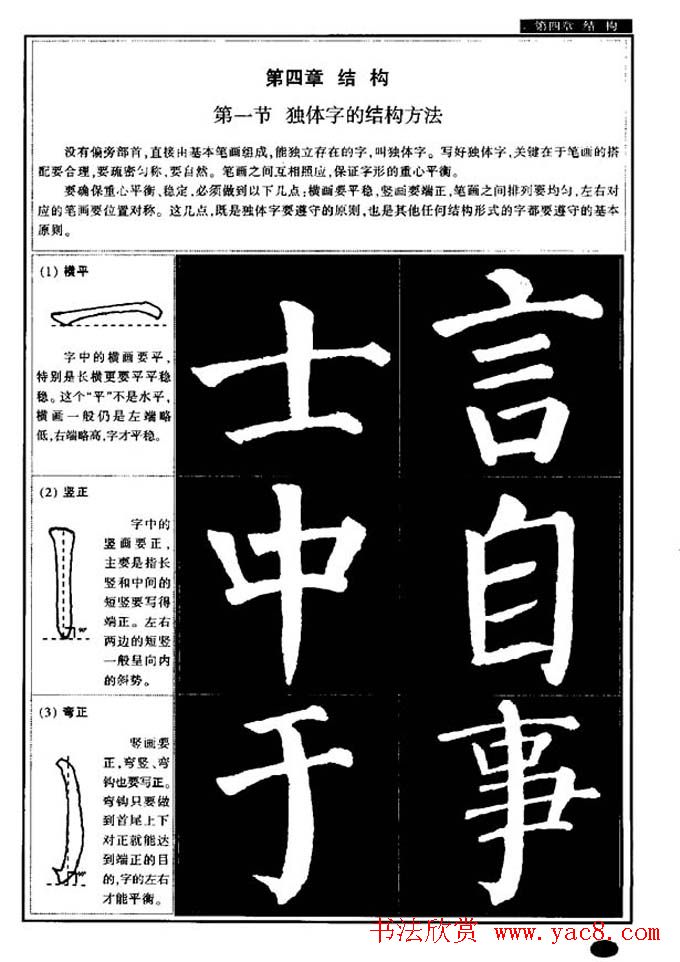 第四章 结 构
第四章 结 构
第一节 独体字的结构方法
没有偏旁部首,直接由基本笔画组成,能独立存在的字,叫独体字。写好独体字,关键在于笔画的搭
配要合理,要疏密匀称,要自然。笔画之间互相照应,保证字形的重心平衡。
要确保重心平衡、稳定,必须做到以下几点:横画要平稳,竖画要端正,笔画之间排列要均匀,左右对
应的笔画要位置对称。这几点,既是独体字要遵守的原则,也是其他任何结构形式的字都要遵守的基本
原则。
(1) 横平
字中的横画要平,
特别是长横更要平平稳
稳。这个“平”不是水平,
横画一般仍是左端略
低,右端略高,字才平稳。
士 言
(2) 竖正
字中的
竖画要正,
主要是指长
竖和中间的
短竖要写得
端正。左右
两边的短竖
一般呈向内
的斜势。
90°
中 自
(3) 弯正
竖画要
正,弯竖、弯
钩也要写正。
弯钩只要做
到首尾上下
对正就能达
到端正的目
的,字的左右
才能平衡。
90°
于 事
书法欣赏 www.yac8.com